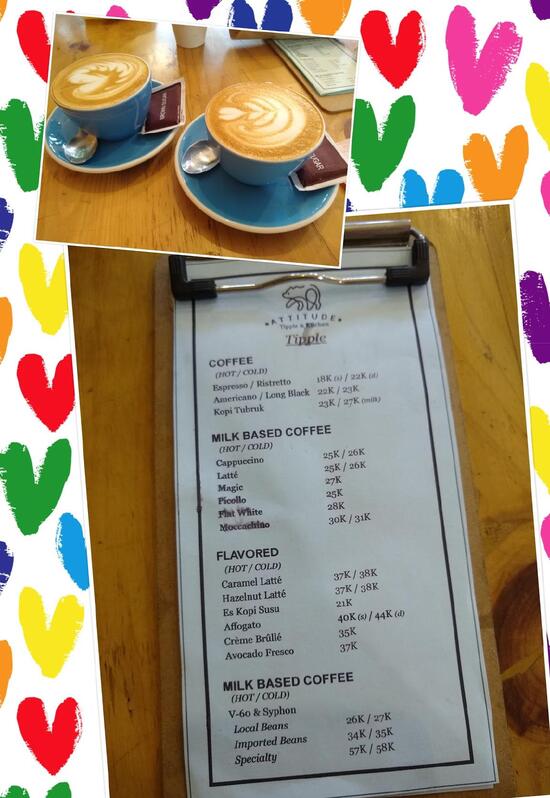 BROWN SUGAR
SUGAR
ATTITUDE
Tipple & Kitchen
Tipple
COFFEE
(HOT / COLD)
Espresso / Ristretto 18K (s) / 22K (d)
Americano / Long Black 22K / 23K
Kopi Tubruk 23K / 27K (milk)
MILK BASED COFFEE
(HOT / COLD)
Cappuccino 25K / 26K
Latté 25K / 26K
Magic 27K
Picollo 25K
Flat White 28K
Moccachino 30K / 31K
FLAVORED
(HOT / COLD)
Caramel Latté 37K / 38K
Hazelnut Latté 37K / 38K
Es Kopi Susu 21K
Affogato 40K (s) / 44K (d)
Crème Brûllé 35K
Avocado Fresco 37K
MILK BASED COFFEE
(HOT / COLD)
V-60 & Syphon
Local Beans 26K / 27K
Imported Beans 34K / 35K
Specialty 57K / 58K